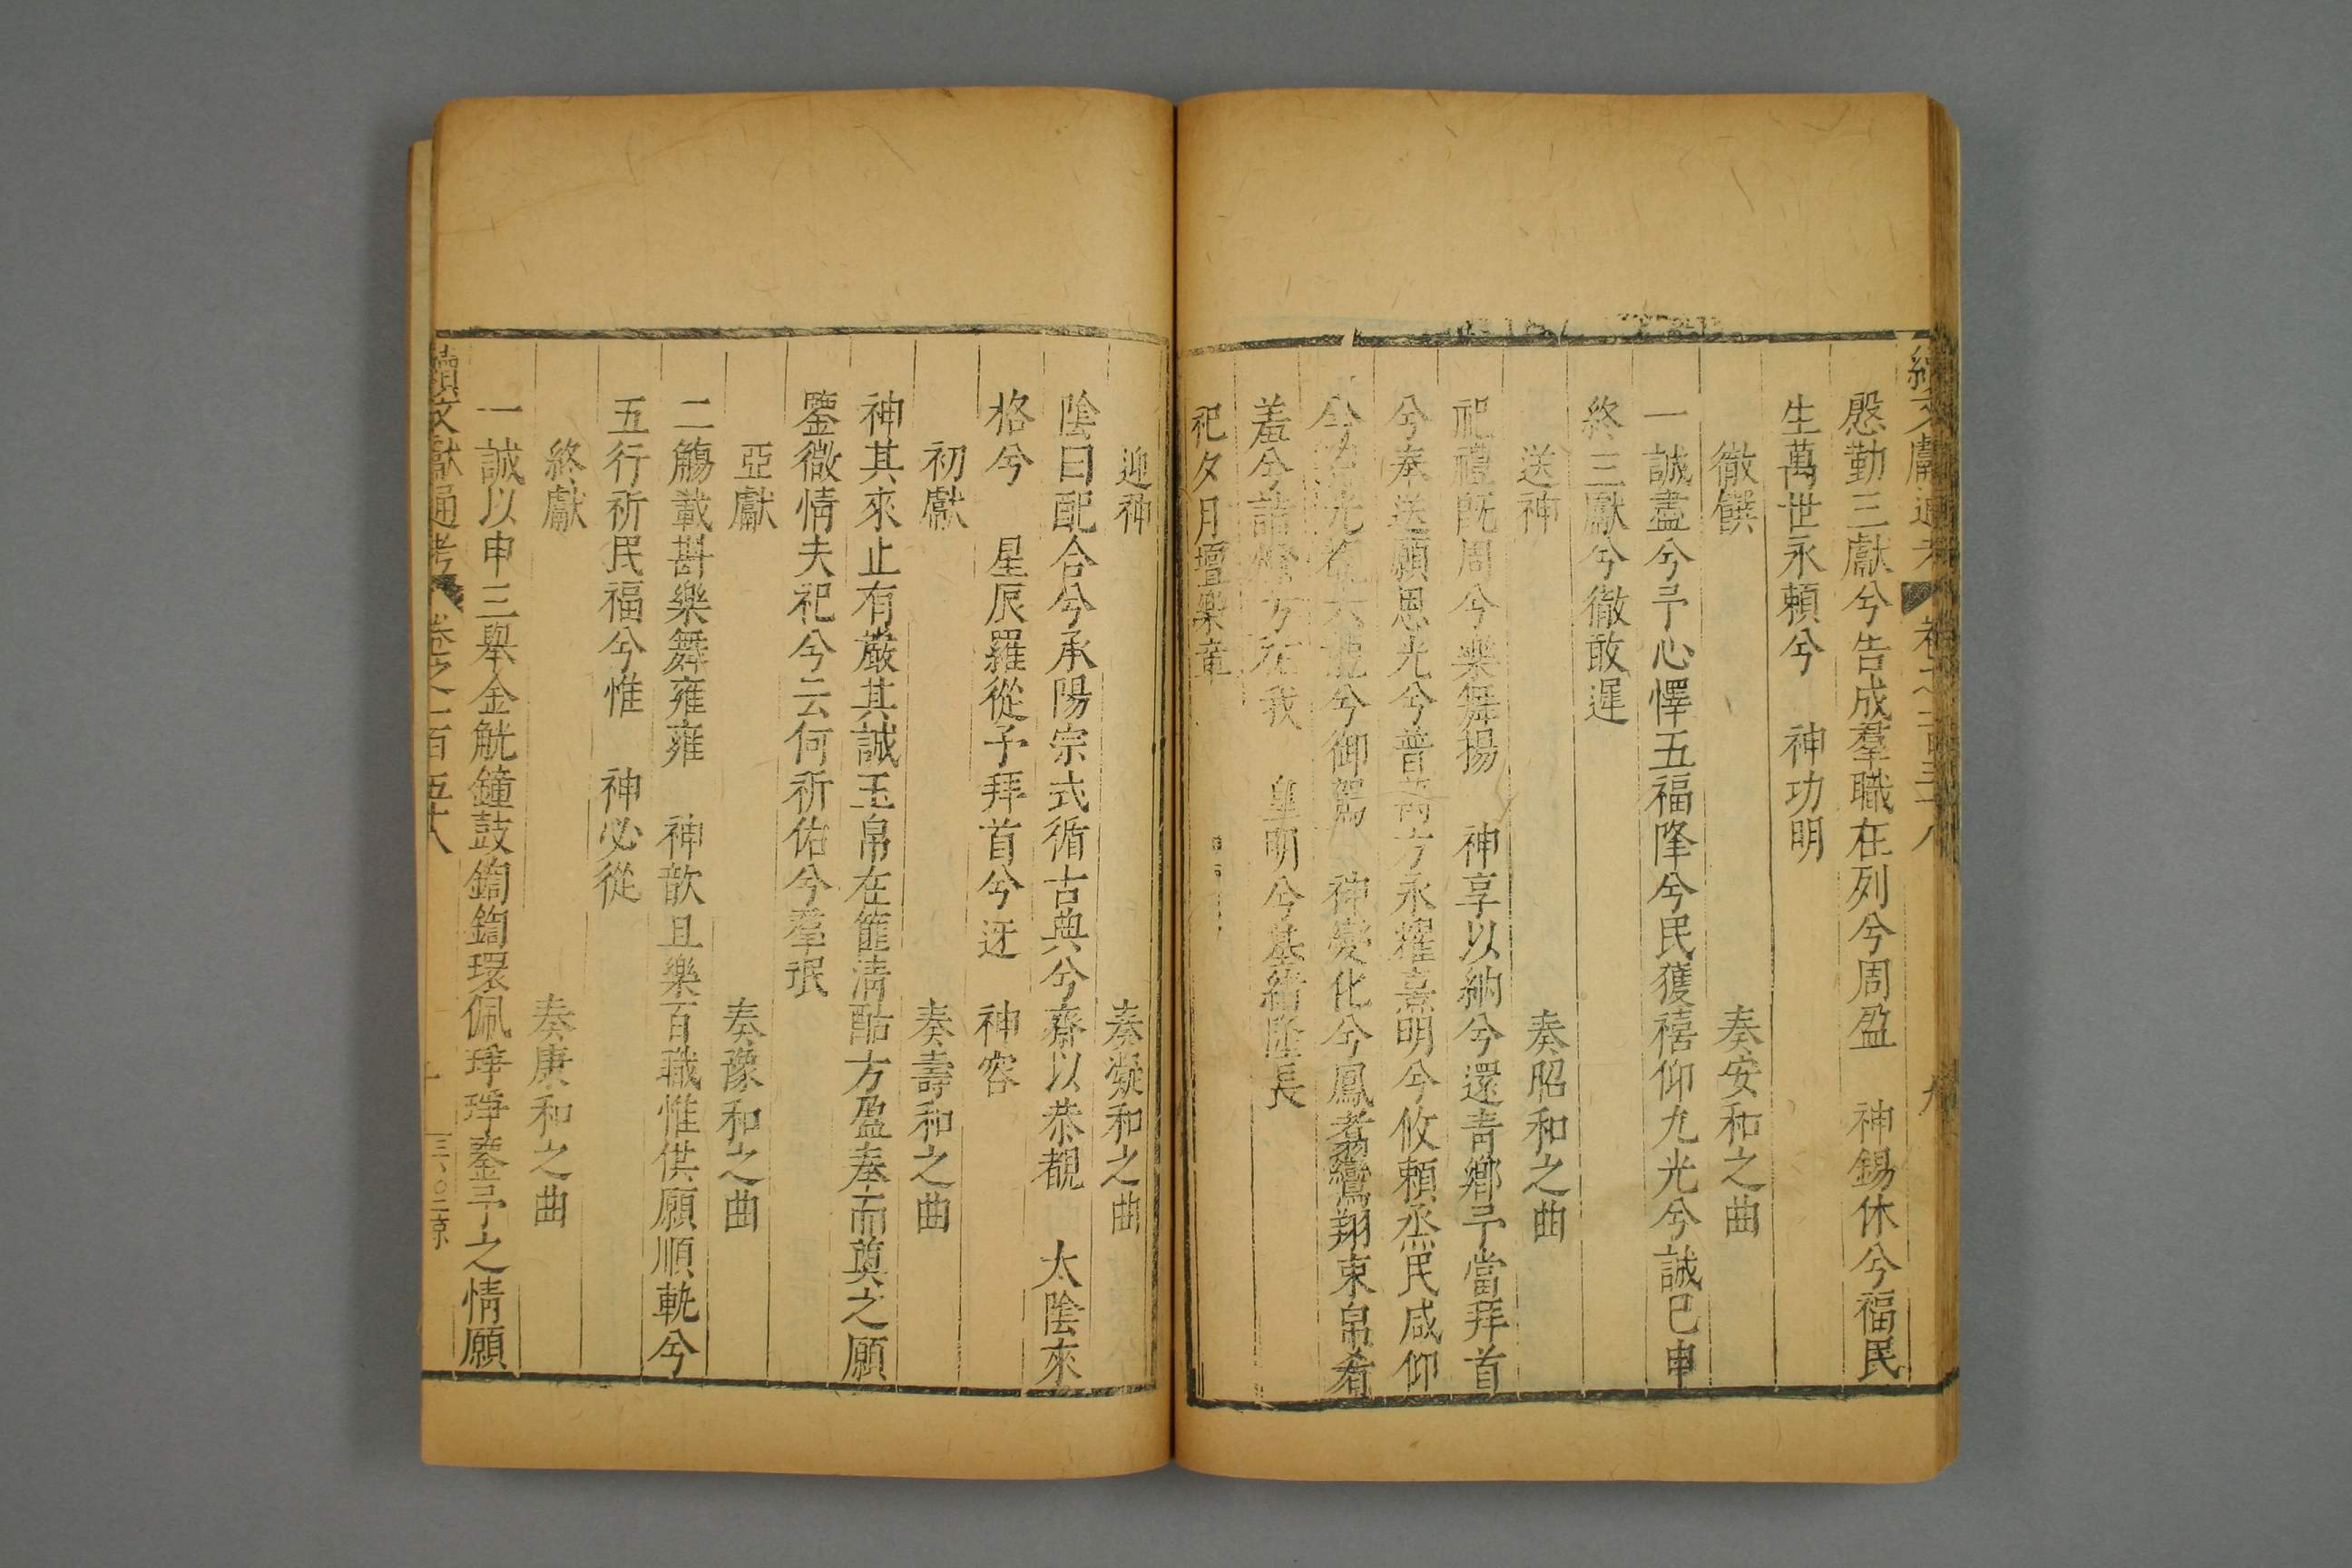 續文獻通考 卷之一百五十八 九
慇勤三獻兮告成羣職在列兮周盈 神錫休兮福民
生萬世永賴兮 神功明
徹饌 奏安和之曲
一誠盡兮予心懌五福降兮民獲禧仰九光兮誠已申
終三獻兮徹敢遲
送神 奏昭和之曲
祀禮旣周兮樂舞揚 神享以納兮還青鄉予當拜首
兮奉送願恩光兮普 方永耀熹明兮攸賴烝民咸仰
兮 光 兮御駕 神變化兮鳳翥鸞翔束帛肴
羞兮諸燎方祐我 皇明兮基緒隆長
祀夕月壇樂章
迎神 奏凝和之曲
陰曰配合兮承陽宗式循古典兮齋以恭覩 太陰來
格兮 星辰羅從予拜首兮迓 神容
初獻 奏壽和之曲
神其來止有嚴其誠玉帛在篚淸酤方盈奉而奠之願
鑒微情夫祀兮云何祈佑兮羣氓
亞獻 奏豫和之曲
二觴載斟樂舞雍雍 神歆且樂百職惟供願順軌兮
五行祈民福兮惟 神必從
終獻 奏庚和之曲
一誠以申三舉金觥鐘鼓鍧鍧環佩琤琤鑒予之情願
續文獻通考 卷之一百五十八 十 三、〇二京